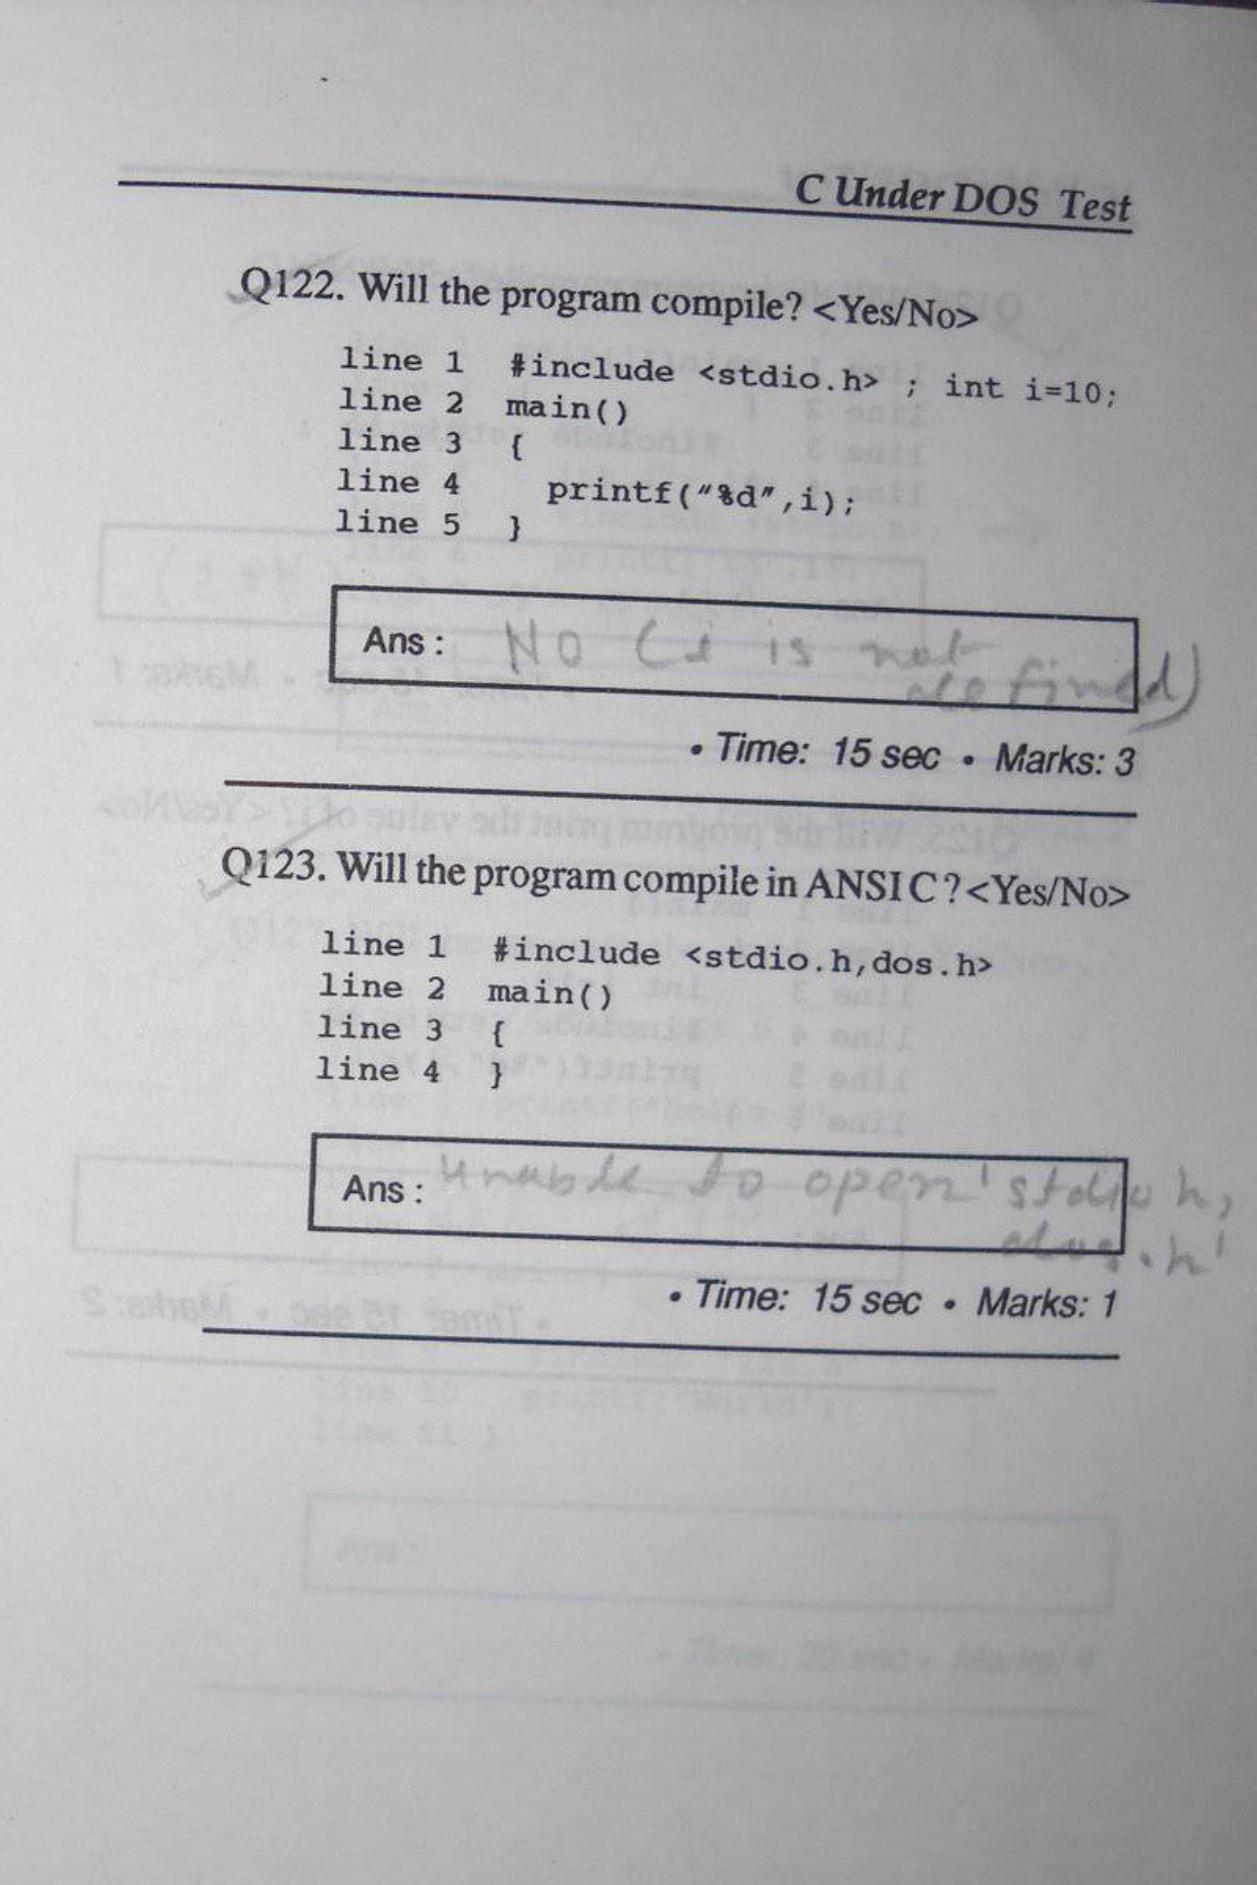 C Under DOS Test
Q122. Will the program compile? <Yes/No>
line 1 #include <stdio.h> ; int i=10;
line 2 main()
line 3 {
line 4 printf("%d",i);
line 5 }
Ans : NO (i is not
defined)
• Time: 15 sec • Marks: 3
Q123. Will the program compile in ANSI C?<Yes/No>
line 1 #include <stdio.h,dos.h>
line 2 main()
line 3 {
line 4 }
Ans : Unable to open 'stdio h,
dos.h'
• Time: 15 sec • Marks: 1